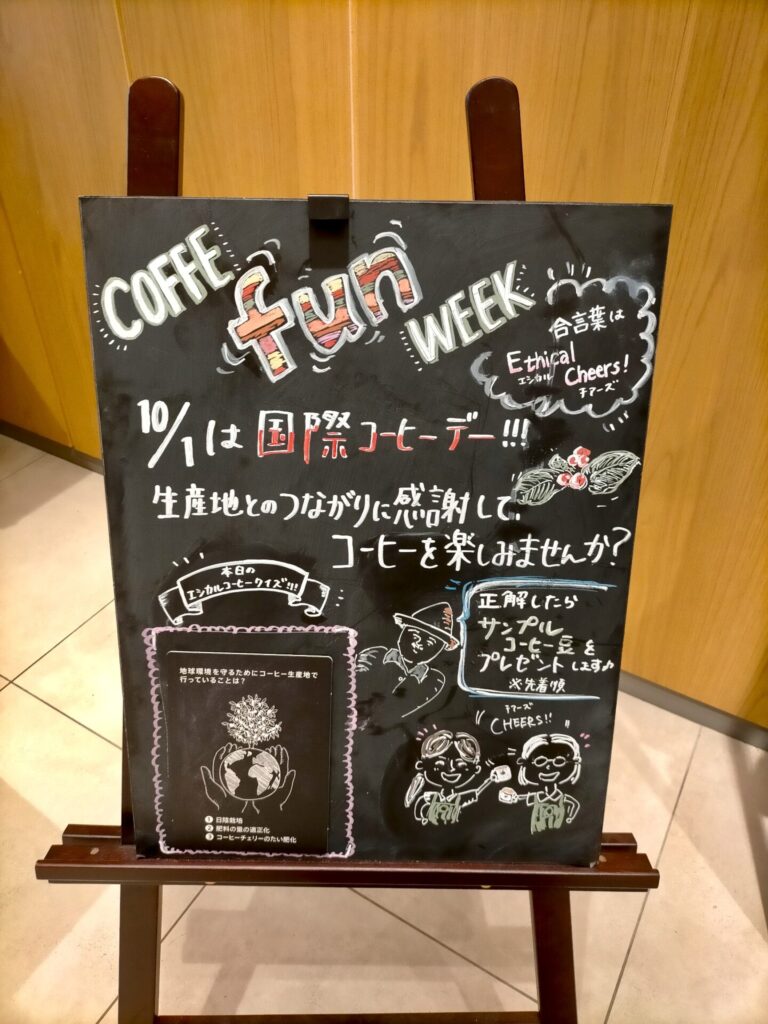 COFFE fun WEEK
合言葉は
Ethical
エシカル
Cheers!
チアーズ
10/1は国際コーヒーデー!!!
生産地とのつながりに感謝して、
コーヒーを楽しみませんか?
本日の
エシカルコーヒークイズ!!!
地球環境を守るためにコーヒー生産地で
行っていることは?
1 日陰栽培
2 肥料の量の適正化
3 コーヒーチェリーのたい肥化
正解したら
サンプル
コーヒー豆を
プレゼントします♪
※先着順
チアーズ
"CHEERS!!"